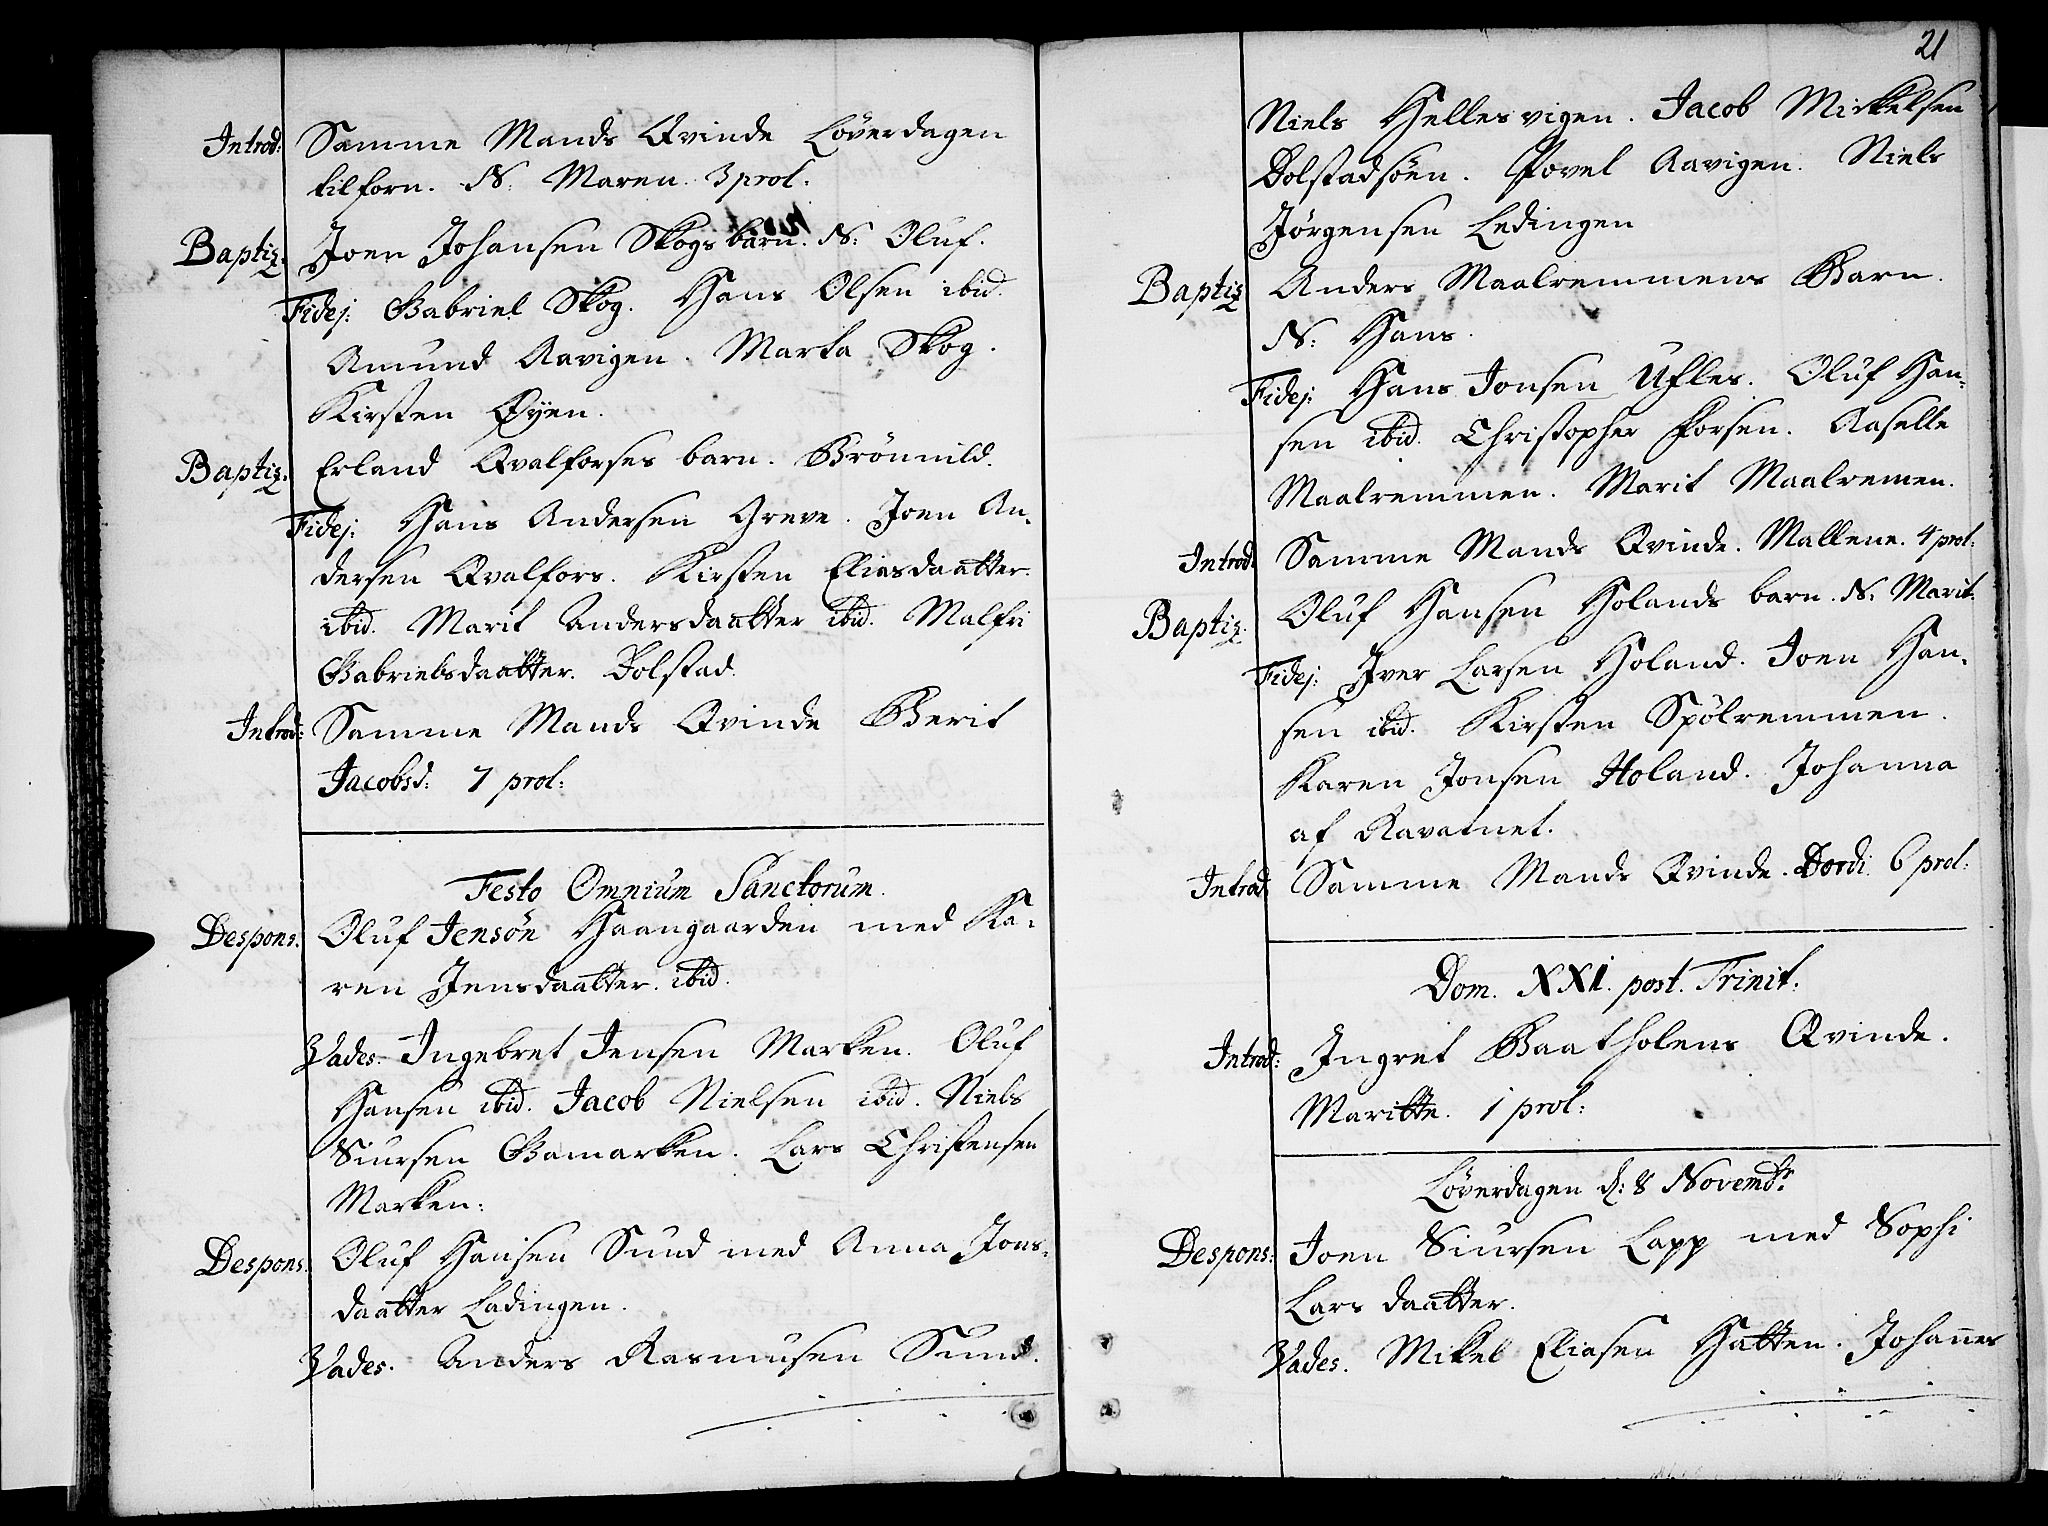 Introd: Samme Mands Qvinde Löverdagen
tilforn. N: Maren. 3 prol:
Baptiz: Joen Johansen Skogs barn. N: Oluf.
Fidej: Gabriel Skog. Hans Olsen ibid.
Amund Aavigen. Marta Skog.
Kirsten Öyen.
Baptiz: Erland Qvalforses barn. Brönnild.
Fidej: Hans Andersen Greve. Joen An-
dersen Qvalfors. Kirsten Eliasdaatter
ibid. Marit Andersdaatter ibid. Malfri
Gabrielsdaatter. Dolstad.
Introd: Samme Mands Qvinde Berit
Jacobsd: 7 prol:
Festo Omnium Sanctorum.
Despons. Oluf Jensön Haangaarden med Ka-
ren Jensdaatter. ibid.
Vades. Ingebret Jensen Marken. Oluf
Hansen ibid. Jacob Nielsen ibid. Niels
Siursen Gamarken. Lars Christensen
Marken:
Despons. Oluf Hansen Sund med Anna Jons-
daatter Ladingen.
Vades. Anders Rasmusen Sund.
21
Niels Hellesvigen. Jacob Mickelsen
Dolstadsöen. Povel Aavigen. Niels
Jörgensen Ledingen
Baptiz Anders Maalremmens Barn.
N: Hans.
Fidej: Hans Jonsen Ufles. Oluf Han-
sen ibid. Christopher Forsen. Aaselle
Maalremmen. Marit Maalremen.
Introd: Samme Mands Qvinde. Mallene. 4 prol:
Baptiz. Oluf Hansen Holands barn. N: Marit.
Fidej: Iver Larsen Holand. Joen Han-
sen ibid. Kirsten Spölremmen.
Karen Jonsen Holand. Johanna
af Ravatnet.
Introd. Samme Mands Qvinde. Dordi. 6 prol:
Dom. XXI. post. Trinit:
Introd: Ingret Baatholens Qvinde.
Maritte. 1 prol:
Löverdagen d: 8 Novembr
Despons: Joen Siursen Lapp med Sophi
Lars daatter.
Vades. Mikel Eliasen Hatten. Johannes